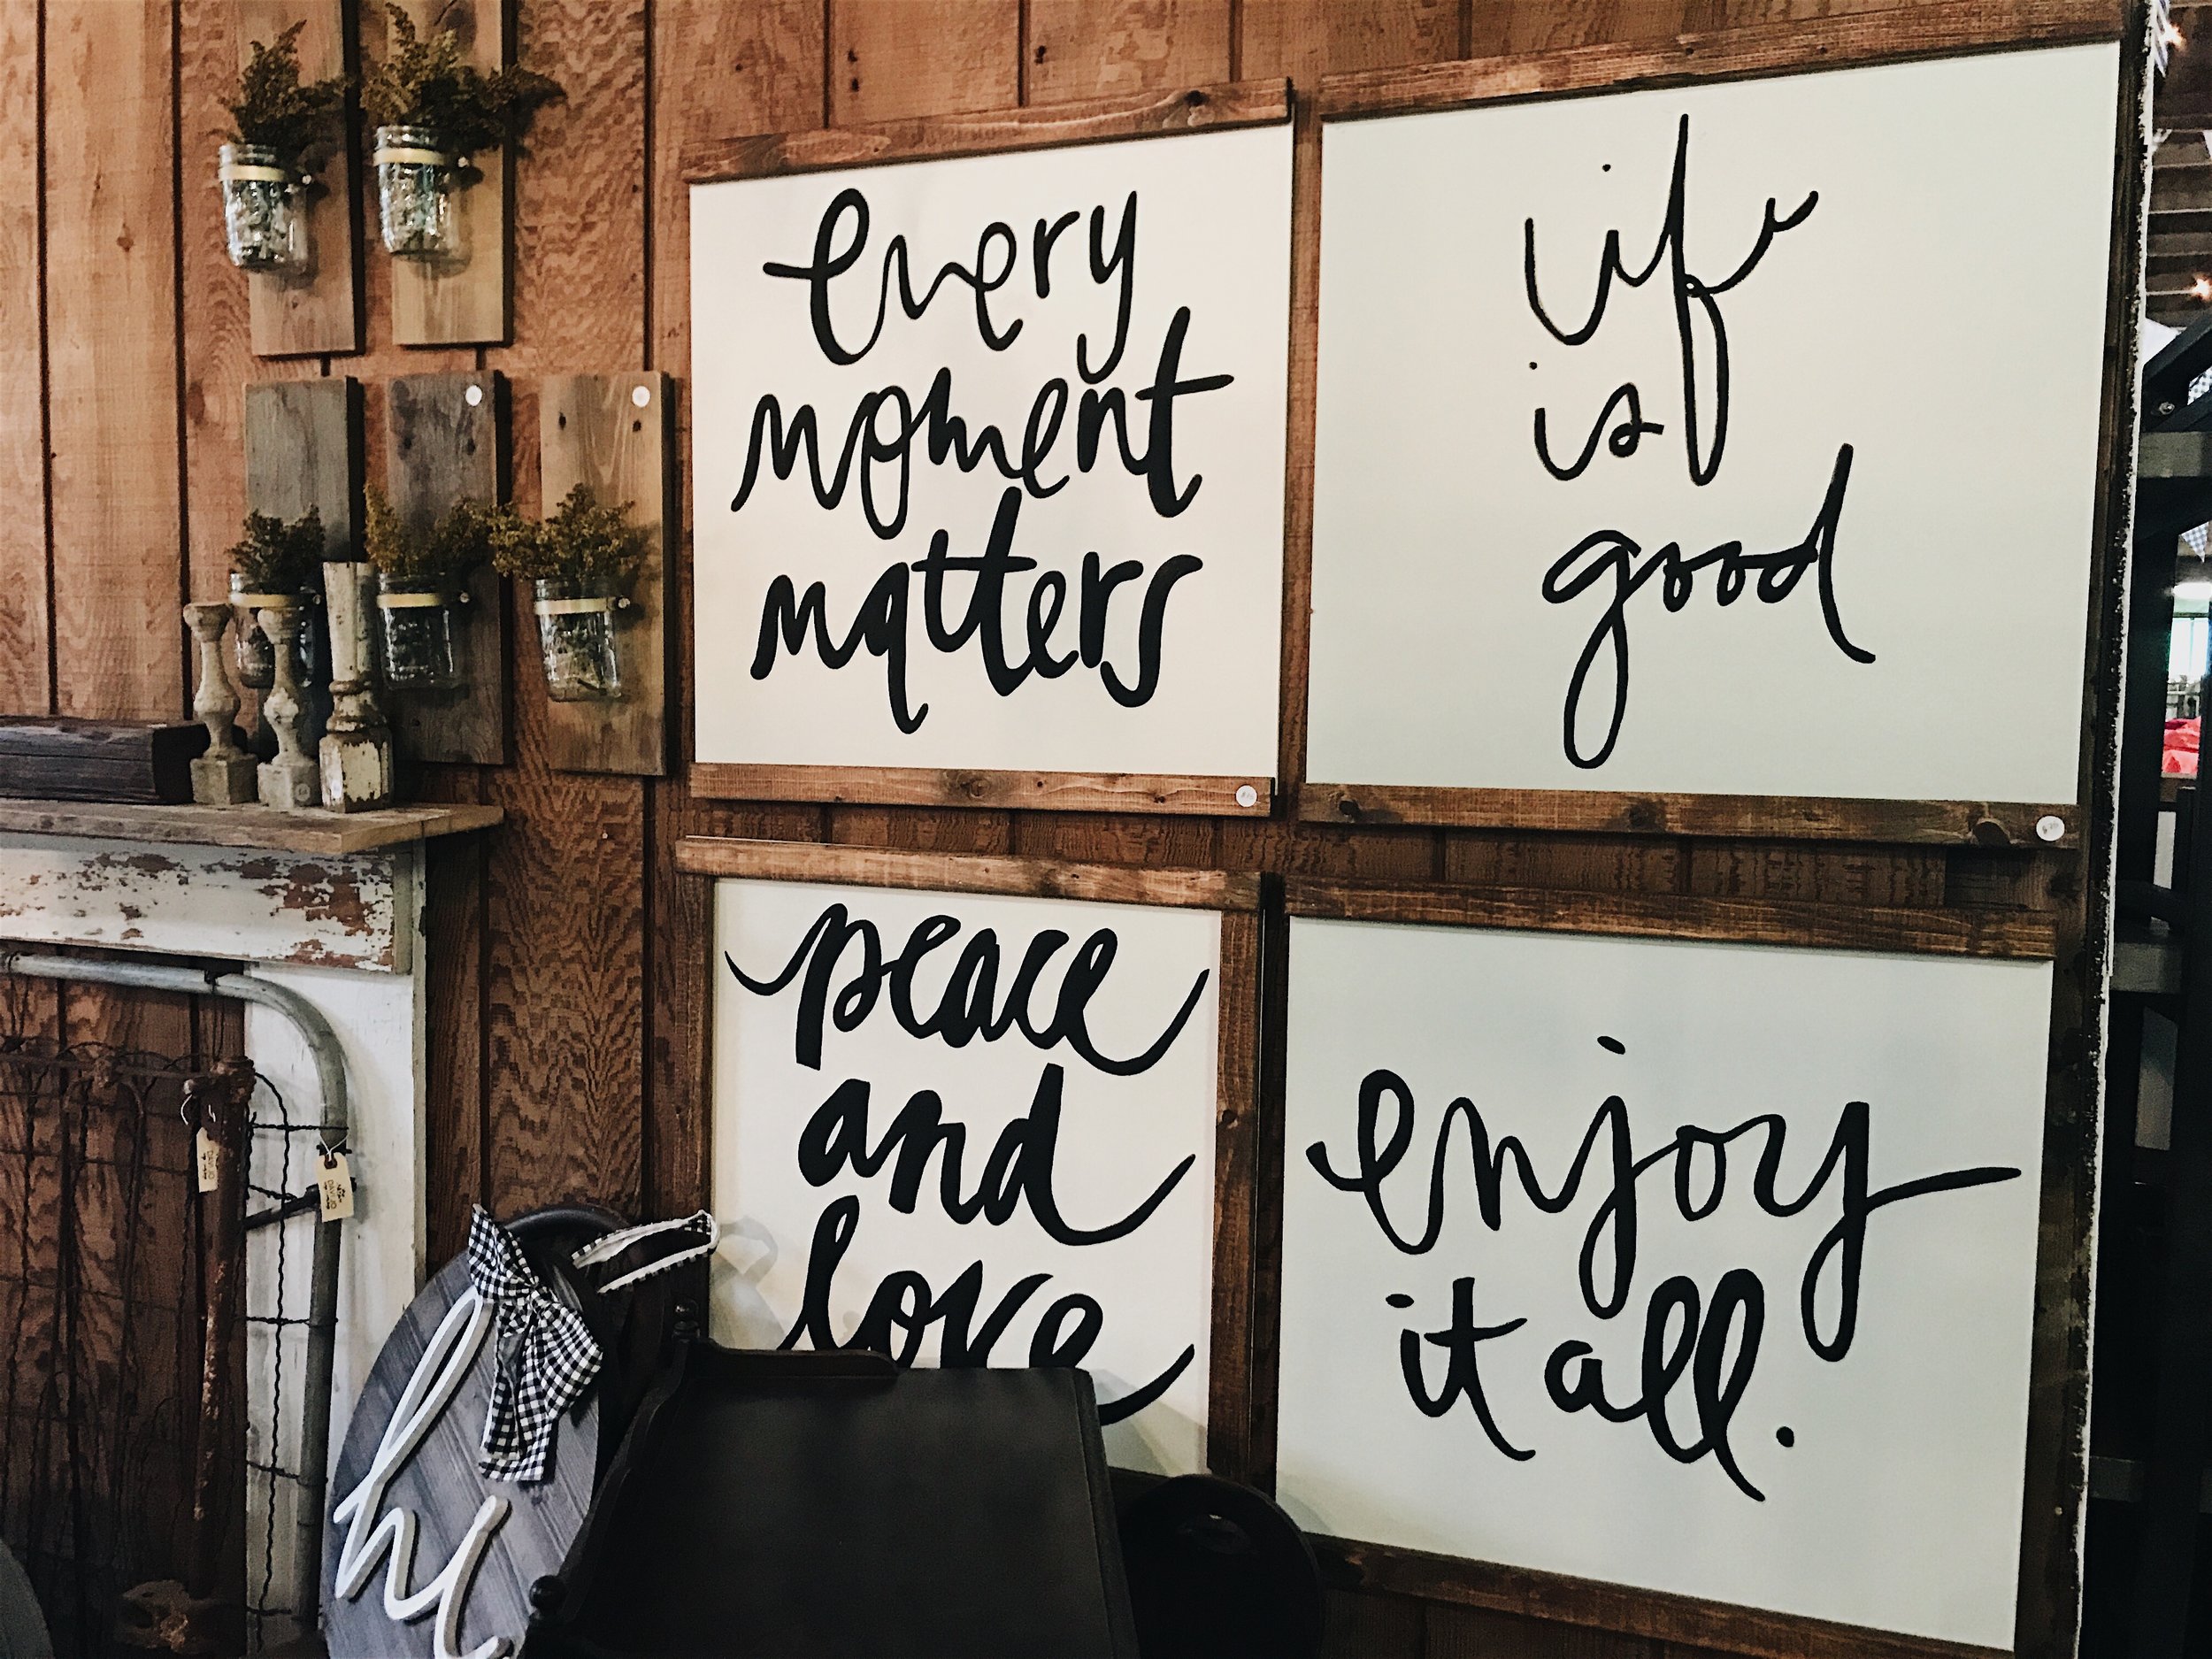 every
moment
matters
life
is
good
peace
and
love
enjoy
it all.
hi